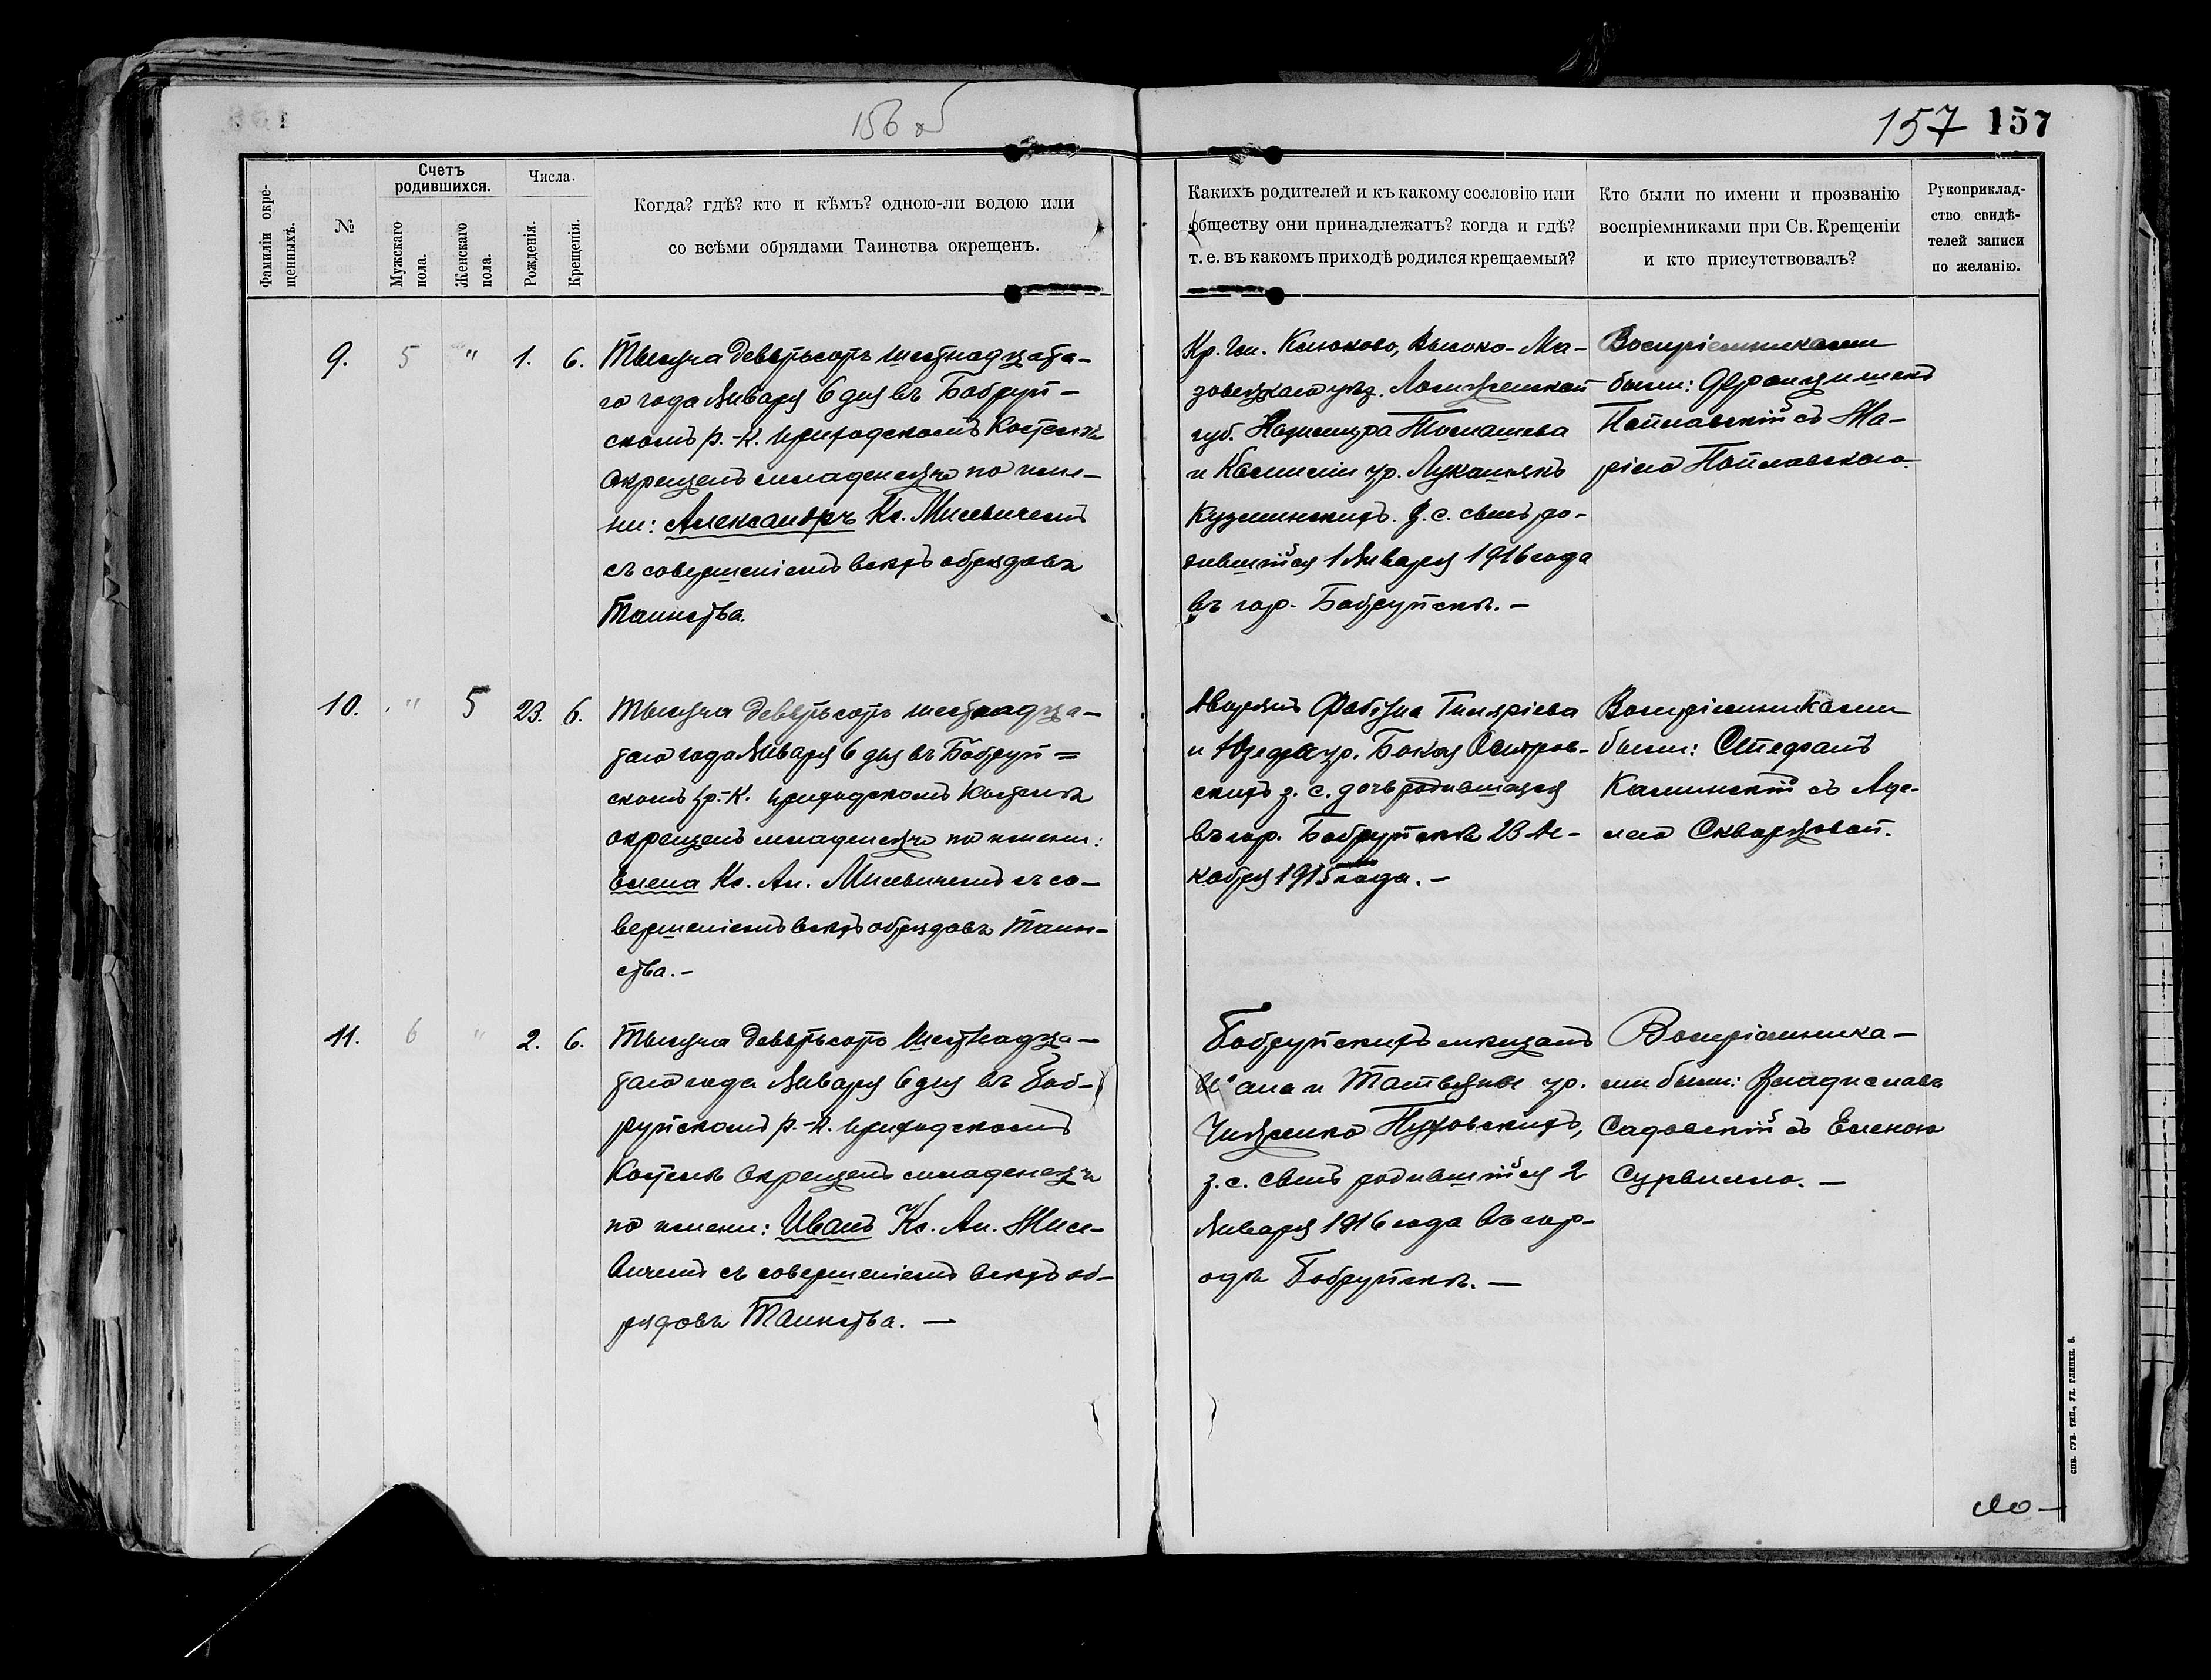 156 об
157 157
Фамиліи окре-
щенныхъ.
№
Счетъ
родившихся.
Мужскаго
пола.
Женскаго
пола.
Числа.
Рожденія.
Крещенія.
Когда? гдѣ? кто и кѣмъ? одною-ли водою или
со всѣми обрядами Таинства окрещенъ.
Какихъ родителей и къ какому сословію или
обществу они принадлежатъ? когда и гдѣ?
т. е. въ какомъ приходѣ родился крещаемый?
Кто были по имени и прозванію
воспріемниками при Св. Крещеніи
и кто присутствовалъ?
Рукоприклад-
ство свидѣ-
телей записи
по желанію.
9. 5 " 1. 6.
Тысяча девятьсотъ шестнадцата-
го года Января 6 дня въ Бобруй-
скомъ р.-к. приходскомъ Костелѣ
окрещенъ младенецъ по име-
ни: Александръ Кс. Мисевичемъ
съ совершеніемъ всѣхъ обрядовъ
Таинства.
Кр. Гм. Клюково, Высоко-Ма-
зовецкаго уѣз. Ломжинской
губ. Казимира Томашева
и Камиліи ур. Лукашукъ
Кузминскихъ з. с. сынъ ро-
дившійся 1 Января 1916 года
въ гор. Бобруйскѣ. —
Воспріемниками
были: Францишекъ
Поплавскій съ Ма-
ріею Поплавскою.
10. " 5 23. 6.
Тысяча девятьсотъ шестнадца-
таго года Января 6 дня въ Бобруй=
скомъ р.-к. приходскомъ Костелѣ
окрещенъ младенецъ по имени:
Елена Кс. Ал. Мисевичемъ съ со-
вершеніемъ всѣхъ обрядовъ Таин-
ства. —
Дворянъ Фабіана Гиляріева
и Юзефа ур. Бокая Остров-
скихъ з. с. дочь родившаяся
въ гор. Бобруйскѣ 23 Де-
кабря 1915 года. —
Воспріемниками
были: Стефанъ
Каминскій съ Аде-
лею Скварцовой.
11. 6 " 2. 6.
Тысяча девятьсотъ шестнадца-
таго года Января 6 дня въ Боб-
руйскомъ р.-к. приходскомъ
Костелѣ окрещенъ младенецъ
по имени: Иванъ Кс. Ал. Мисе-
вичемъ съ совершеніемъ всѣхъ об-
рядовъ Таинства. —
Бобруйскихъ мѣщанъ
и Татьяны ур.
Пуховскихъ,
з. с. сынъ родившійся 2
Января 1916 года въ гор-
одѣ Бобруйскѣ. —
Воспріемника-
ми были: Владиславъ
Садовскій съ Еленою
Сурвилло. —
СПБ. ГУБ. ТИП., УЛ. ГЛИНКИ, 8.